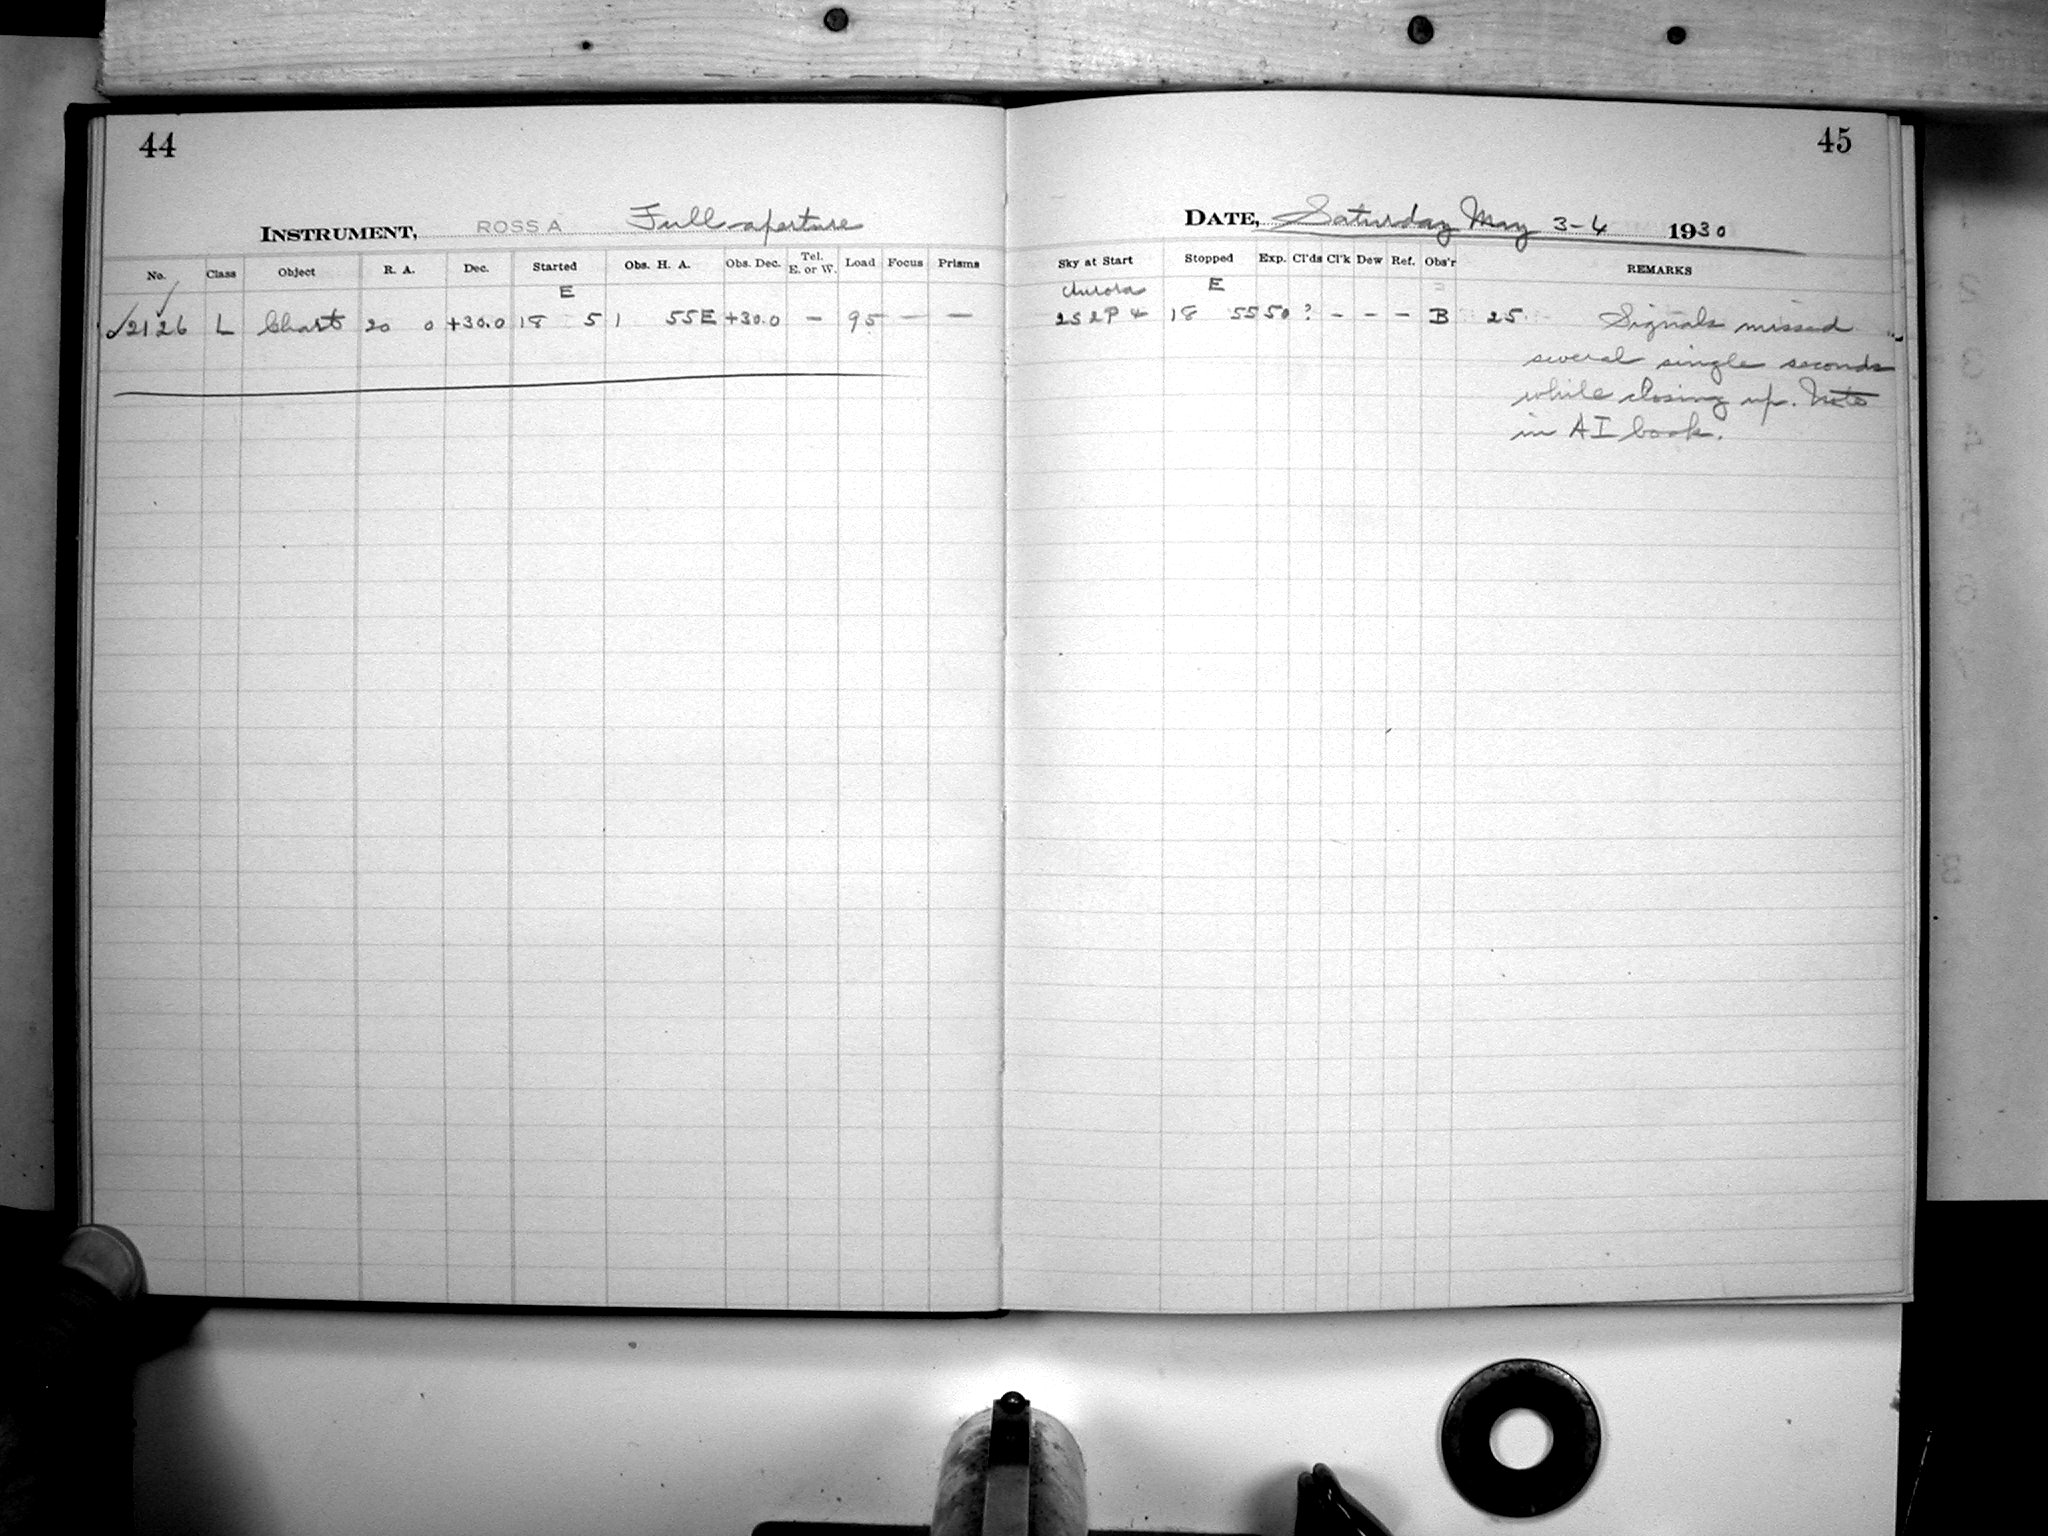 44
INSTRUMENT, ROSS A Full aperture
No. Class Object R. A. Dec. Started Obs. H. A. Obs. Dec. Tel. E. or W. Load Focus Prisms
E
✓2126 L Chart 20 0 +30.0 18 5 1 55E +30.0 – 95 – –
45
DATE, Saturday May 3-4 1930
Sky at Start Stopped Exp. Cl'ds Cl'k Dew Ref. Obs'r REMARKS
Aurora E
2S 2P 18 55 50 ? – – – B 25 Signals missed
several single seconds
while closing up. Note
in AI book.